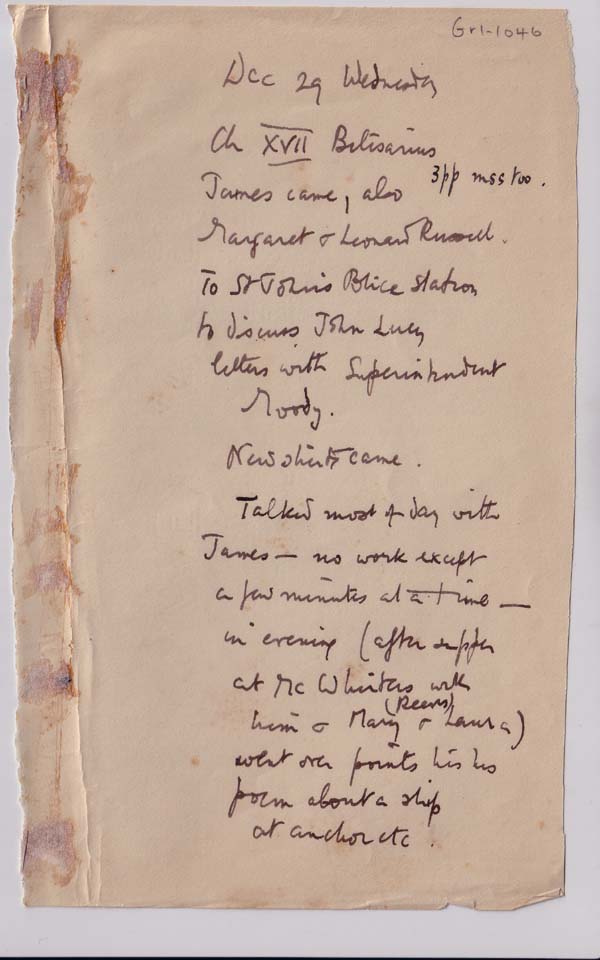 Gr1-1046
Dec 29 Wednesday
Ch XVII Belisarius
3pp mss too.
James came, also
Margaret & Leonard Russell.
To St John's Police Station
to discuss John Lucy
letters with Superintendent
Moody.
New shirts came.
Talked most of day with
James — no work except
a few minutes at a time —
in evening (after supper
at McWhirters with
(Reeves)
him & Mary & Laura)
went over points in his
poem about a ship
at anchor etc.